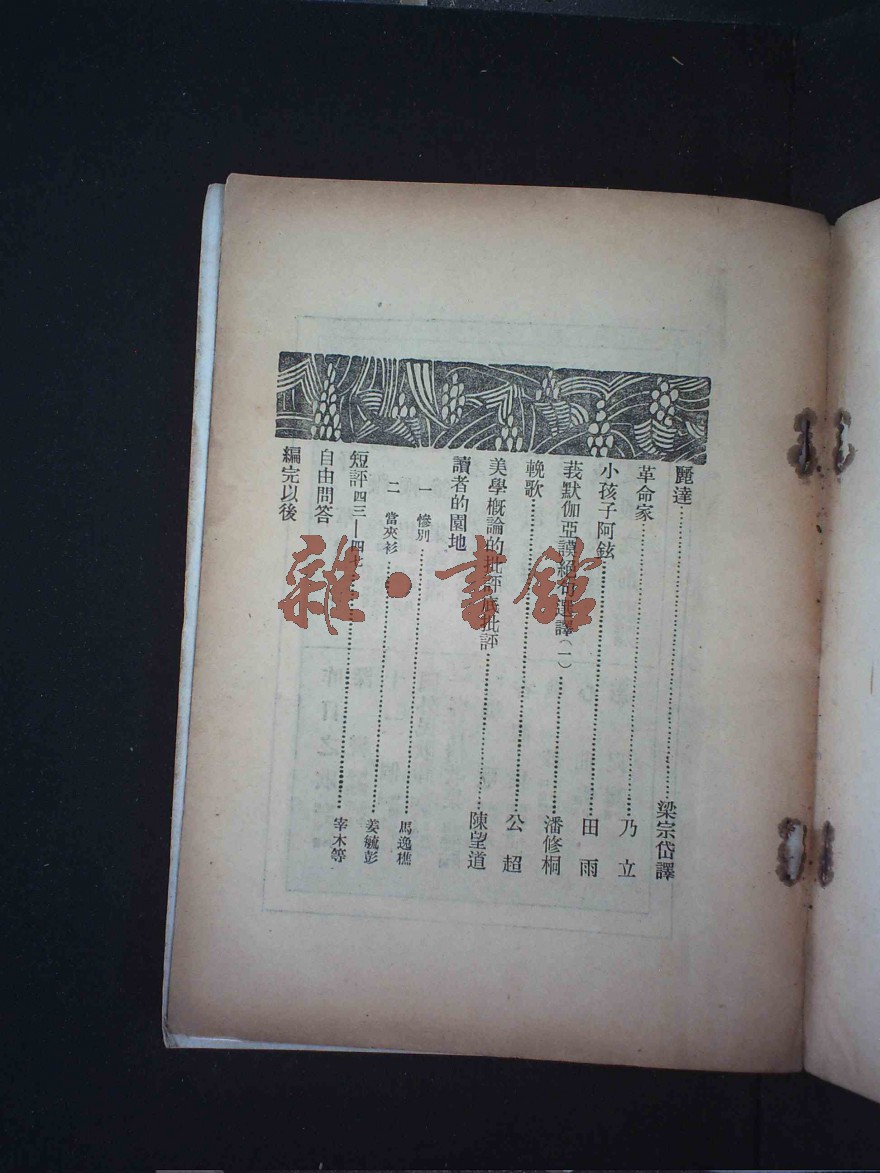 麗達⋯⋯⋯⋯⋯⋯⋯⋯梁宗岱譯
革命家⋯⋯⋯⋯⋯⋯⋯⋯乃立
小孩子阿鉉⋯⋯⋯⋯⋯⋯⋯⋯田雨
莪默伽亞謨絕句選譯(一)⋯⋯⋯⋯潘修桐
輓歌⋯⋯⋯⋯⋯⋯⋯⋯公超
美學概論的批評底批評⋯⋯⋯⋯陳望道
讀者的園地
一 慘別⋯⋯⋯⋯⋯⋯⋯⋯馬逸樵
二 當夾衫⋯⋯⋯⋯⋯⋯⋯⋯姜毓彭
短評四三—四七⋯⋯⋯⋯⋯⋯宰木等
自由問答
編完以後
雜·書館